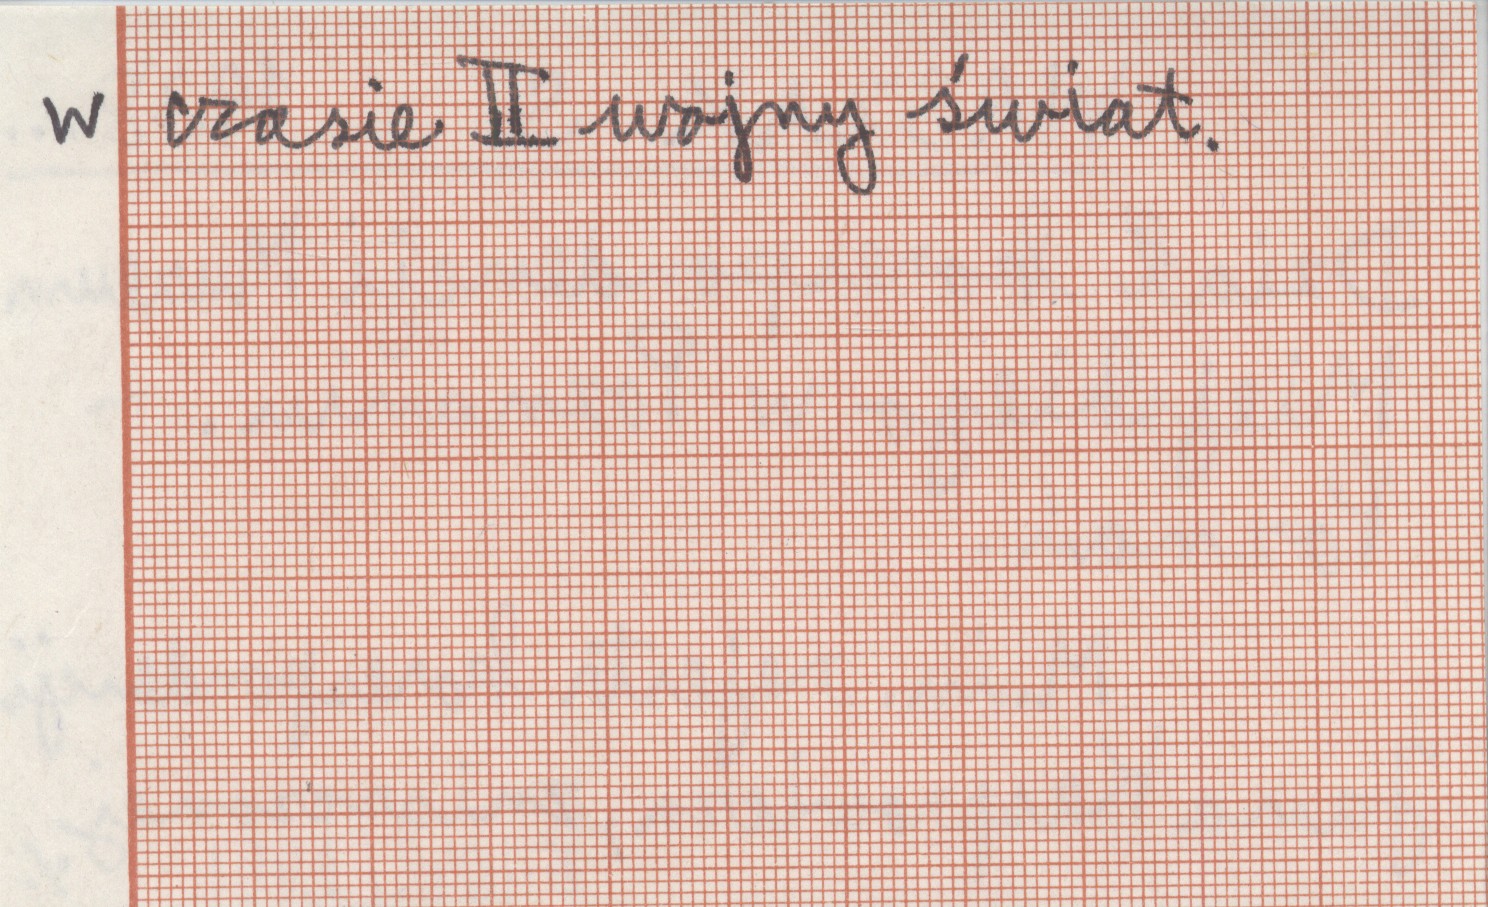 w czasie II wojny świat.